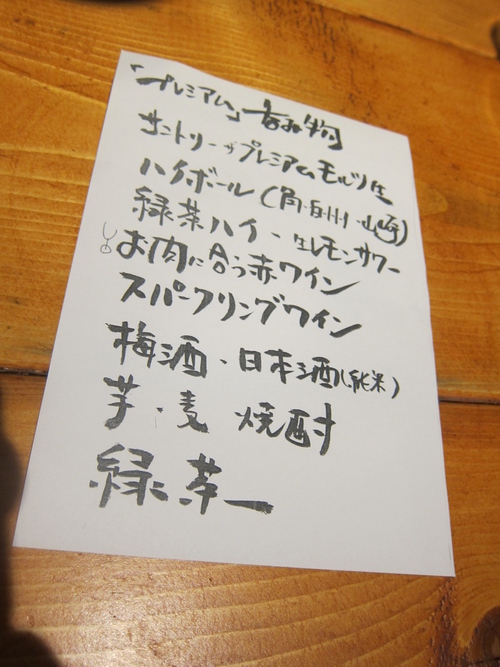 「プレミアム」飲み物
サントリーザプレミアムモルツ生
ハイボール（角・白州・山崎）
緑茶ハイ・生レモンサワー
お肉に合う赤ワイン
スパークリングワイン
梅酒・日本酒（純米）
芋・麦 焼酎
緑茶